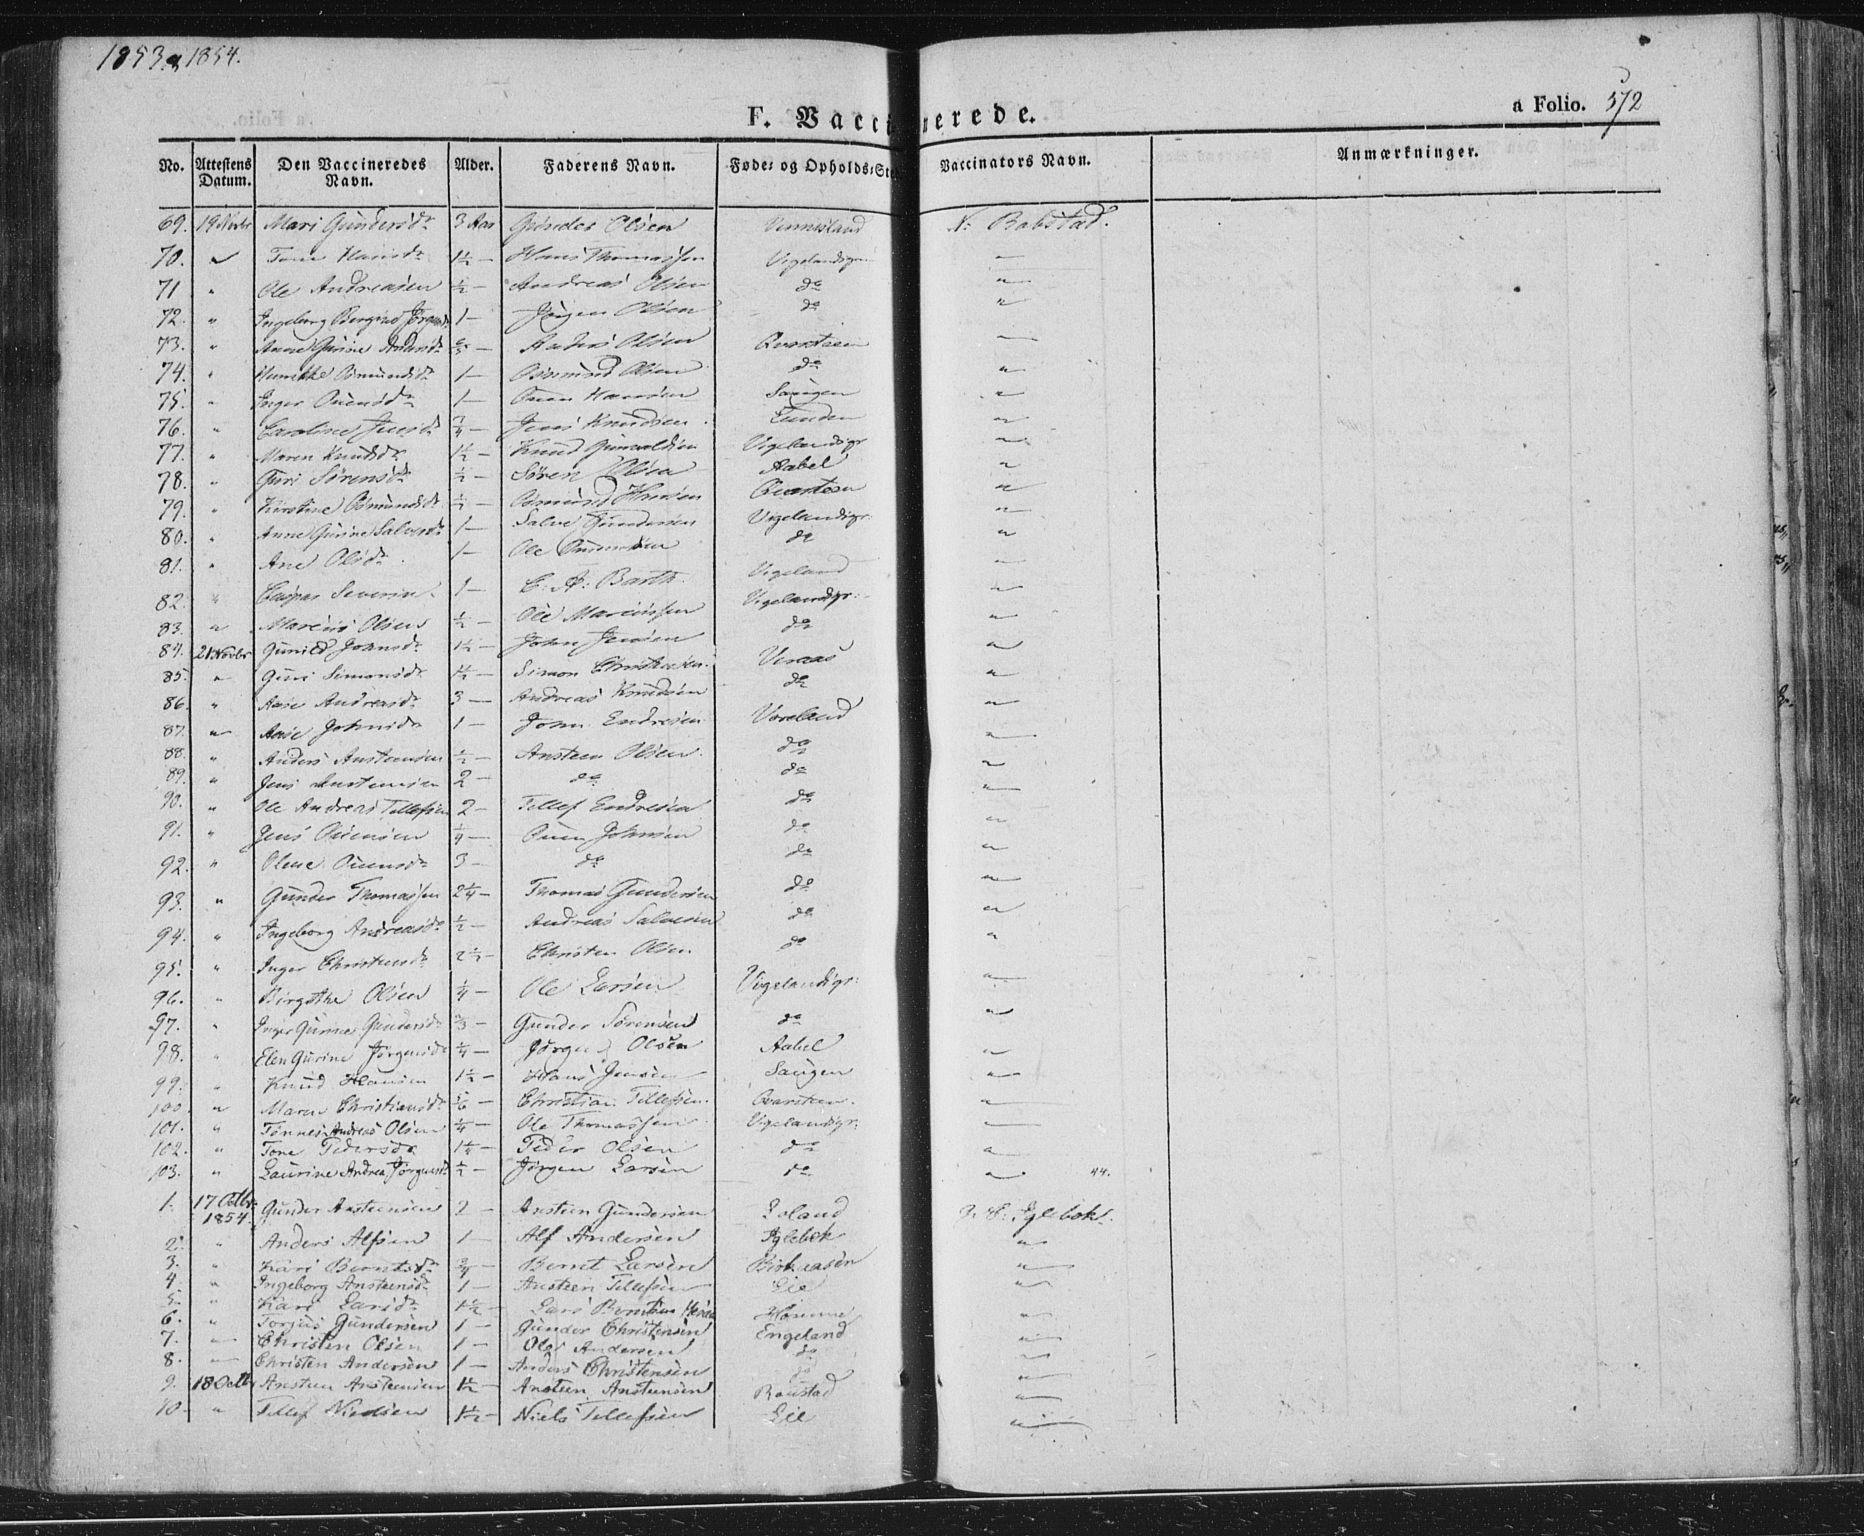 1853 & 1854.
F. Vaccinerede.
a Folio. 572
No. Attestens Datum. Den Vaccineredes Navn. Alder. Faderens Navn. Føde- og Opholds-Sted Vaccinators Navn. Anmærkninger.
69. 19 Novbr Mari Gundersdr 3 Aar Gunder Olsen Vennesland N. Babstad.
70. " Tone Hansdr 1½ — Hans Thomassen Vigelandsgr "
71 " Ole Andreasen ½ — Andreas Olsen do "
72. " Ingeborg Jørgensdr 1 — Jørgen Olsen do "
73. " Anne Gurine Andersdr — Anders Olsen Qvarsteen "
74. " Osmundsdr 1 — Osmund Olsen do "
75. " Inger 1 — Hansen Saugen "
76. " Caroline Jensdr ¾ — Jens Knudsen Lunden "
77. " Maren Knudsdr 1½ — Knud Gunvaldsen Vigelandsgr "
78. " Guri Sørensdr ½ — Søren Olsen Aabel "
79. " Kirstine Osmundsdr ½ — Osmund Hansen Qvarsteen "
80. " Anne Gurine Salvesdr 1 — Salve Gundersen Vigelandsgr. "
81. " Ane Olsdr 1 — Ole do "
82. " Caspar Severin 1 — C. A. Barth. Vigeland "
83. " Marcus Olsen ½ — Ole Marcussen Vigelandsgr. "
84. 21 Novbr Gunild Johnsdr 1½ — John Jensen do "
85. " Guri Simonsdr 1½ — Simon Christensen "
86. " Aase Andreasdr 3 — Andreas Knudsen do "
87. " Aase Johnsdr 1 — John Endresen "
88. " Anders Ansteensen ½ — Ansteen Olsen do "
89. " Jens Ansteensen 2 — do do "
90. " Ole Andreas Tellefsen 2 — Tellef Endresen do "
91. " Jens ¼ — Johnsen do "
92. " Olene 3 — do do "
93. " Gunder Thomassen 2¼ — Thomas Gundersen do "
94. " Ingeborg Andreasdr ½ — Andreas Salvesen do "
95. " Inger Christensdr 2½ — Christen Olsen do "
96. " Birgithe Olsen ¼ — Ole Larsen Vigelandsgr: "
97. " Inger Gurine Gundersdr ⅔ — Gunder Sørensen do "
98. " Elen Gurine Jørgensdr ¼ — Jørgen Olsen Aabel "
99. " Knud Hansen 1½ — Hans Jensen Saugen "
100. " Maren Christiansdr — Christian Tellefsen. Qvarsteen. "
101. " Tønnes Andreas Olsen ¼ — Ole Thomassen Vigelandsgr. "
102. " Tone Pedersdr 1¼ — Peder Olsen do "
103. " Laurine Andrea Jørgensdr ½ — Jørgen Larsen do " 44.
1. 17 Octbr 1854. Gunder Ansteensen 2 — Ansteen Gundersen Loland Iglebek.
2. " Anders Alfsen 1 — Alf Andersen Iglebek "
3. " Kari Berntsdr ¾ — Bernt Larsen Birkaasen "
4. " Ingeborg Ansteensdr 1 — Ansteen Tellefsen Lie "
5. " Kari Larsdr 1½ — Lars Berntsen "
6. " Torjus Gundersen 1 — Gunder Christensen Engeland "
7. " Christen Olsen 1 — Ole Andersen do "
8. " Christen Andersen 1 — Anders Christensen do "
9. 18 Octbr Ansteen Ansteensen 1½ — Ansteen Ansteensen "
10. " Tellef Nielsen 1½ — Niels Tellefsen Lie "